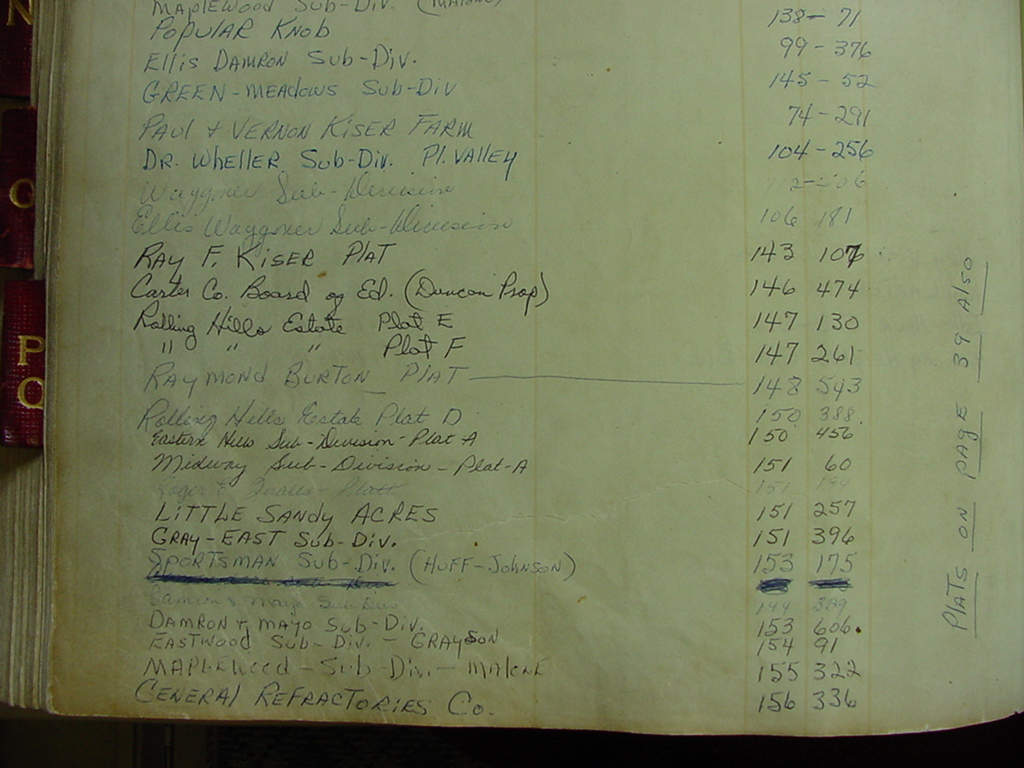 MAPLEWOOD SUB-DIV. (MALONE) 138 - 71
POPULAR KNOB 99 - 376
ELLIS DAMRON SUB-DIV. 145 - 52
GREEN-MEADOWS SUB-DIV 74 - 291
PAUL + VERNON KISER FARM 104 - 256
DR. WHELLER SUB-DIV. Pl. VALLEY
Waggner Sub-Division
Ellis Waggoner Sub-Division 106 181
RAY F. KISER PlAT 143 107
Carter Co. Board of Ed. (Duncan Prop) 146 474
Rolling Hills Estate Plat E 147 130
" " " Plat F 147 261
RAYMOND BURTON PlAT 148 543
Rolling Hills Estate Plat D 150 388
Eastern Hills Sub-Division-Plat A 150 456
Midway Sub-Division-Plat-A 151 60
151
LITTLE SANDY ACRES 151 257
GRAY-EAST SUB-DIV. 151 396
SPORTSMAN SUB-DIV. (HUFF-JOHNSON) 153 175
Mayo Sub Div
DAMRON + MAYO SUB-DIV. 153 606.
EASTWOOD SUB-DIV - GRAYSON 154 91
MAPLEWOOD-SUB-DIV- MALONE 155 322
GENERAL REFRACTORIES Co. 156 336
PLATS ON PAGE 39 Also
N
O
P
Q